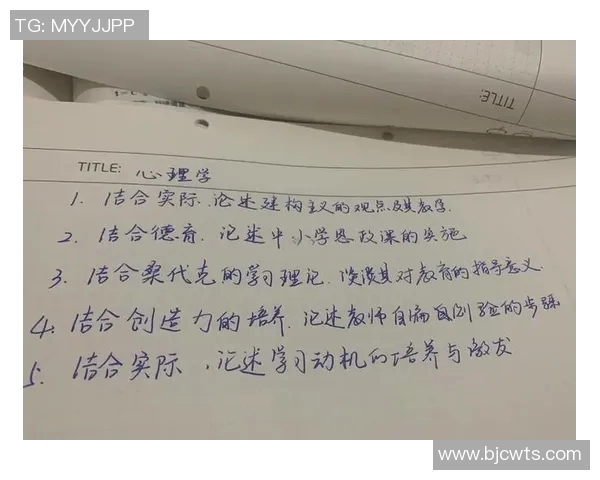 TG: MYYJJPP
TITLE:
TITLE: 心理学
1. 结合实际.论述建构主义的观点及其教学.
2. 结合德育.论述中、小学思政课的实施
3. 结合桑代克的学习理论.谈谈其对教育的指导意义.
4. 结合创造力的培养.论述教师自编自例验的步骤
5. 结合实际,论述学习动机的培养与激发
www.bjcwts.com